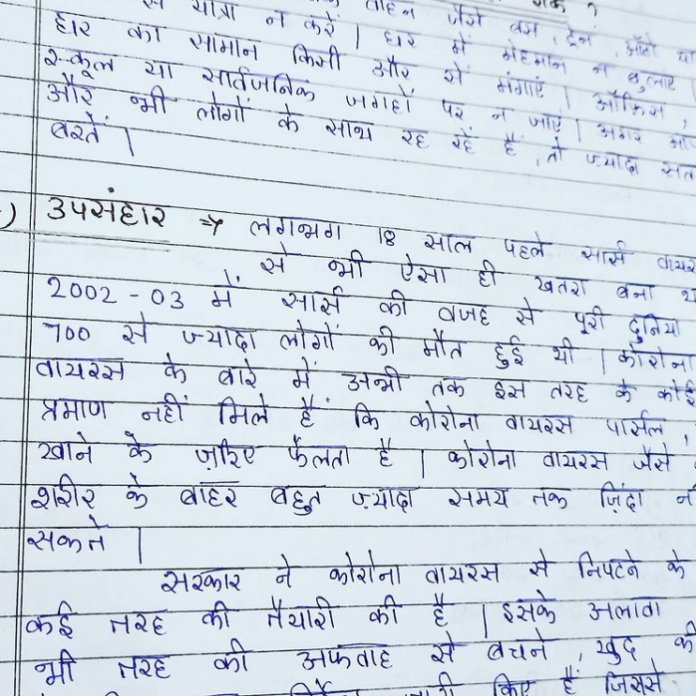 से यात्रा न करें । घर में मेहमान न बुलाएं ।
हार का सामान किसी और से मंगाएं । ऑफिस ,
स्कूल या सार्वजनिक जगहों पर न जाएं । अगर
और भी लोगों के साथ रह रहें हैं , तो ज़्यादा
बरतें ।
उपसंहार ⇒ लगभग 18 साल पहले सार्स वायर
से भी ऐसा ही खतरा बना
2002 - 03 में सार्स की वजह से पूरी दुनिया
700 से ज्यादा लोगों की मौत हुई थी । कोरोना
वायरस के बारे में अभी तक इस तरह के कोई
प्रमाण नहीं मिले हैं कि कोरोना वायरस पार्सल ,
खाने के ज़रिए फैलता है । कोरोना वायरस जैसे
शरीर के बाहर बहुत ज़्यादा समय तक ज़िंदा
सकते ।
सरकार ने कोरोना वायरस से निपटने के
कई तरह की तैयारी की है । इसके अलावा
भी तरह की अफवाह से बचने , खुद की
किए हैं जिससे